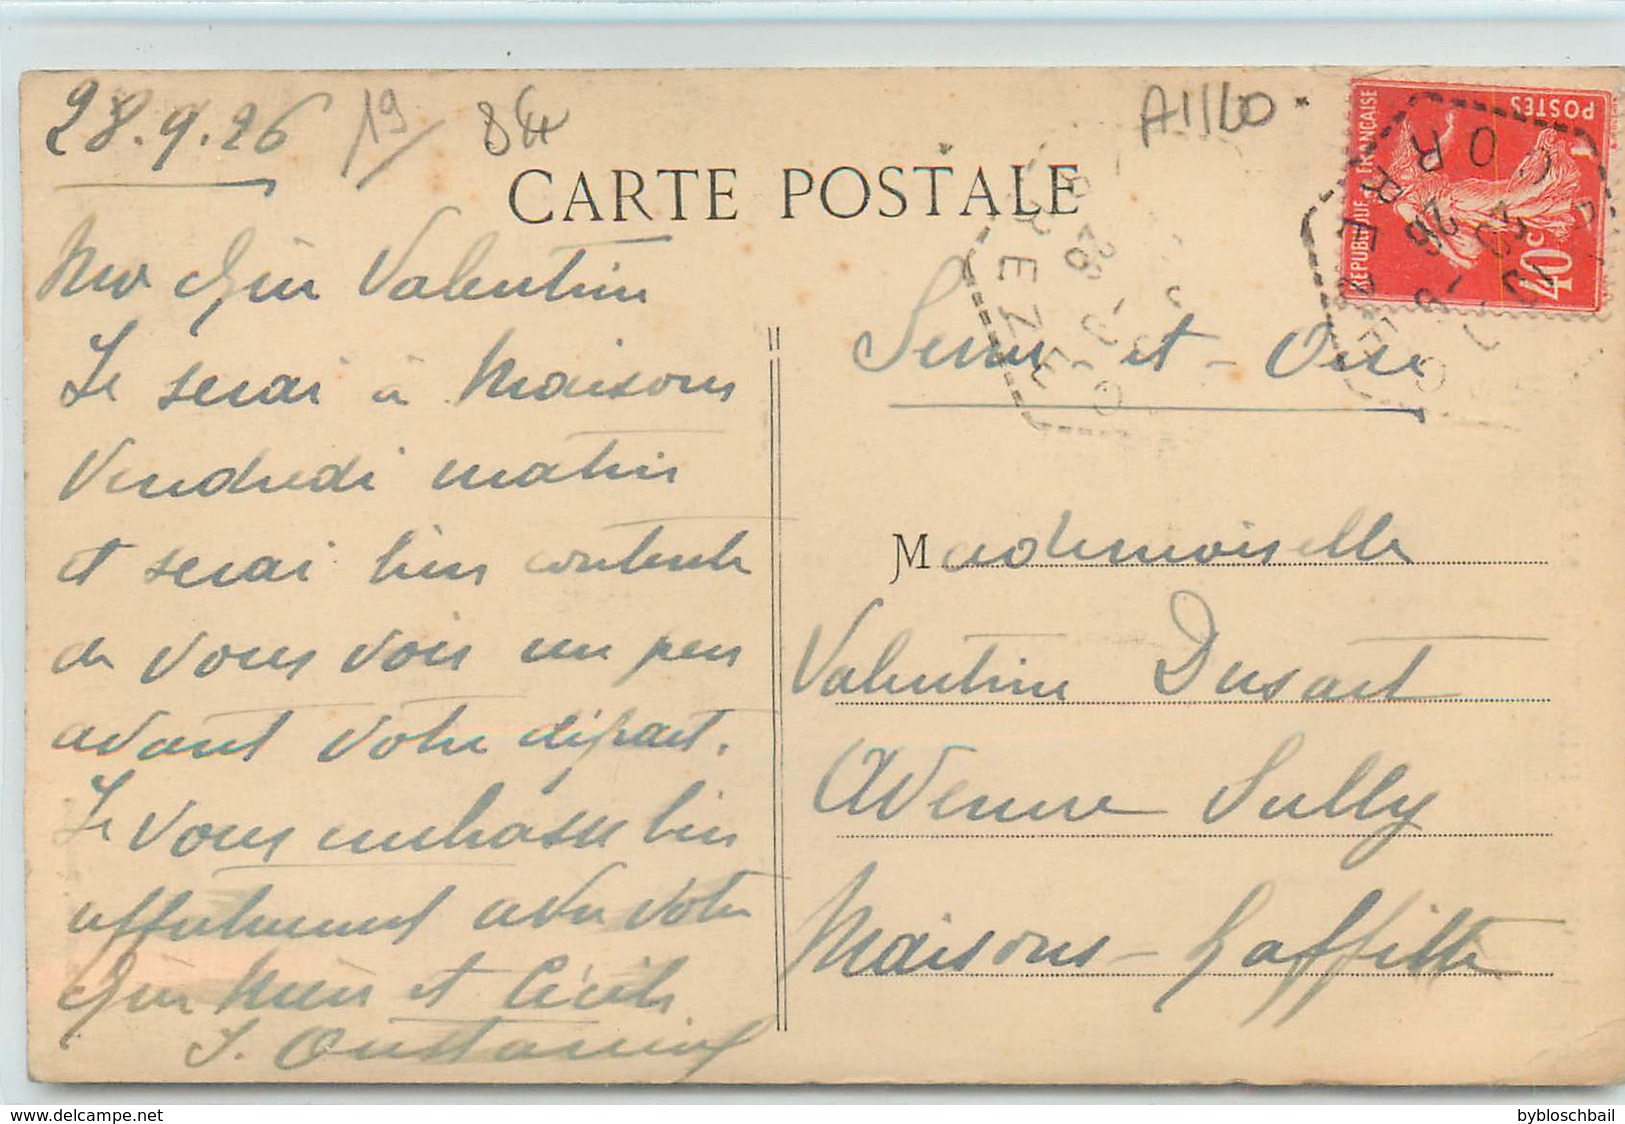 28.9.26
19/ 84
A1160
CARTE POSTALE
REPUBLIQUE FRANCAISE
POSTES
40c
CORREZE
Ma chère Valentine
Je serai à Maisons
Vendredi matin
et serai bien contente
de vous voir un peu
avant votre départ.
Je vous embrasse bien
affectueusement avec votre
chère Mère et Cécile
J.
Seine-et-Oise
Mademoiselle
Valentine Dusart
Avenue Sully
Maisons-Laffitte
www.delcampe.net
bybloschbail